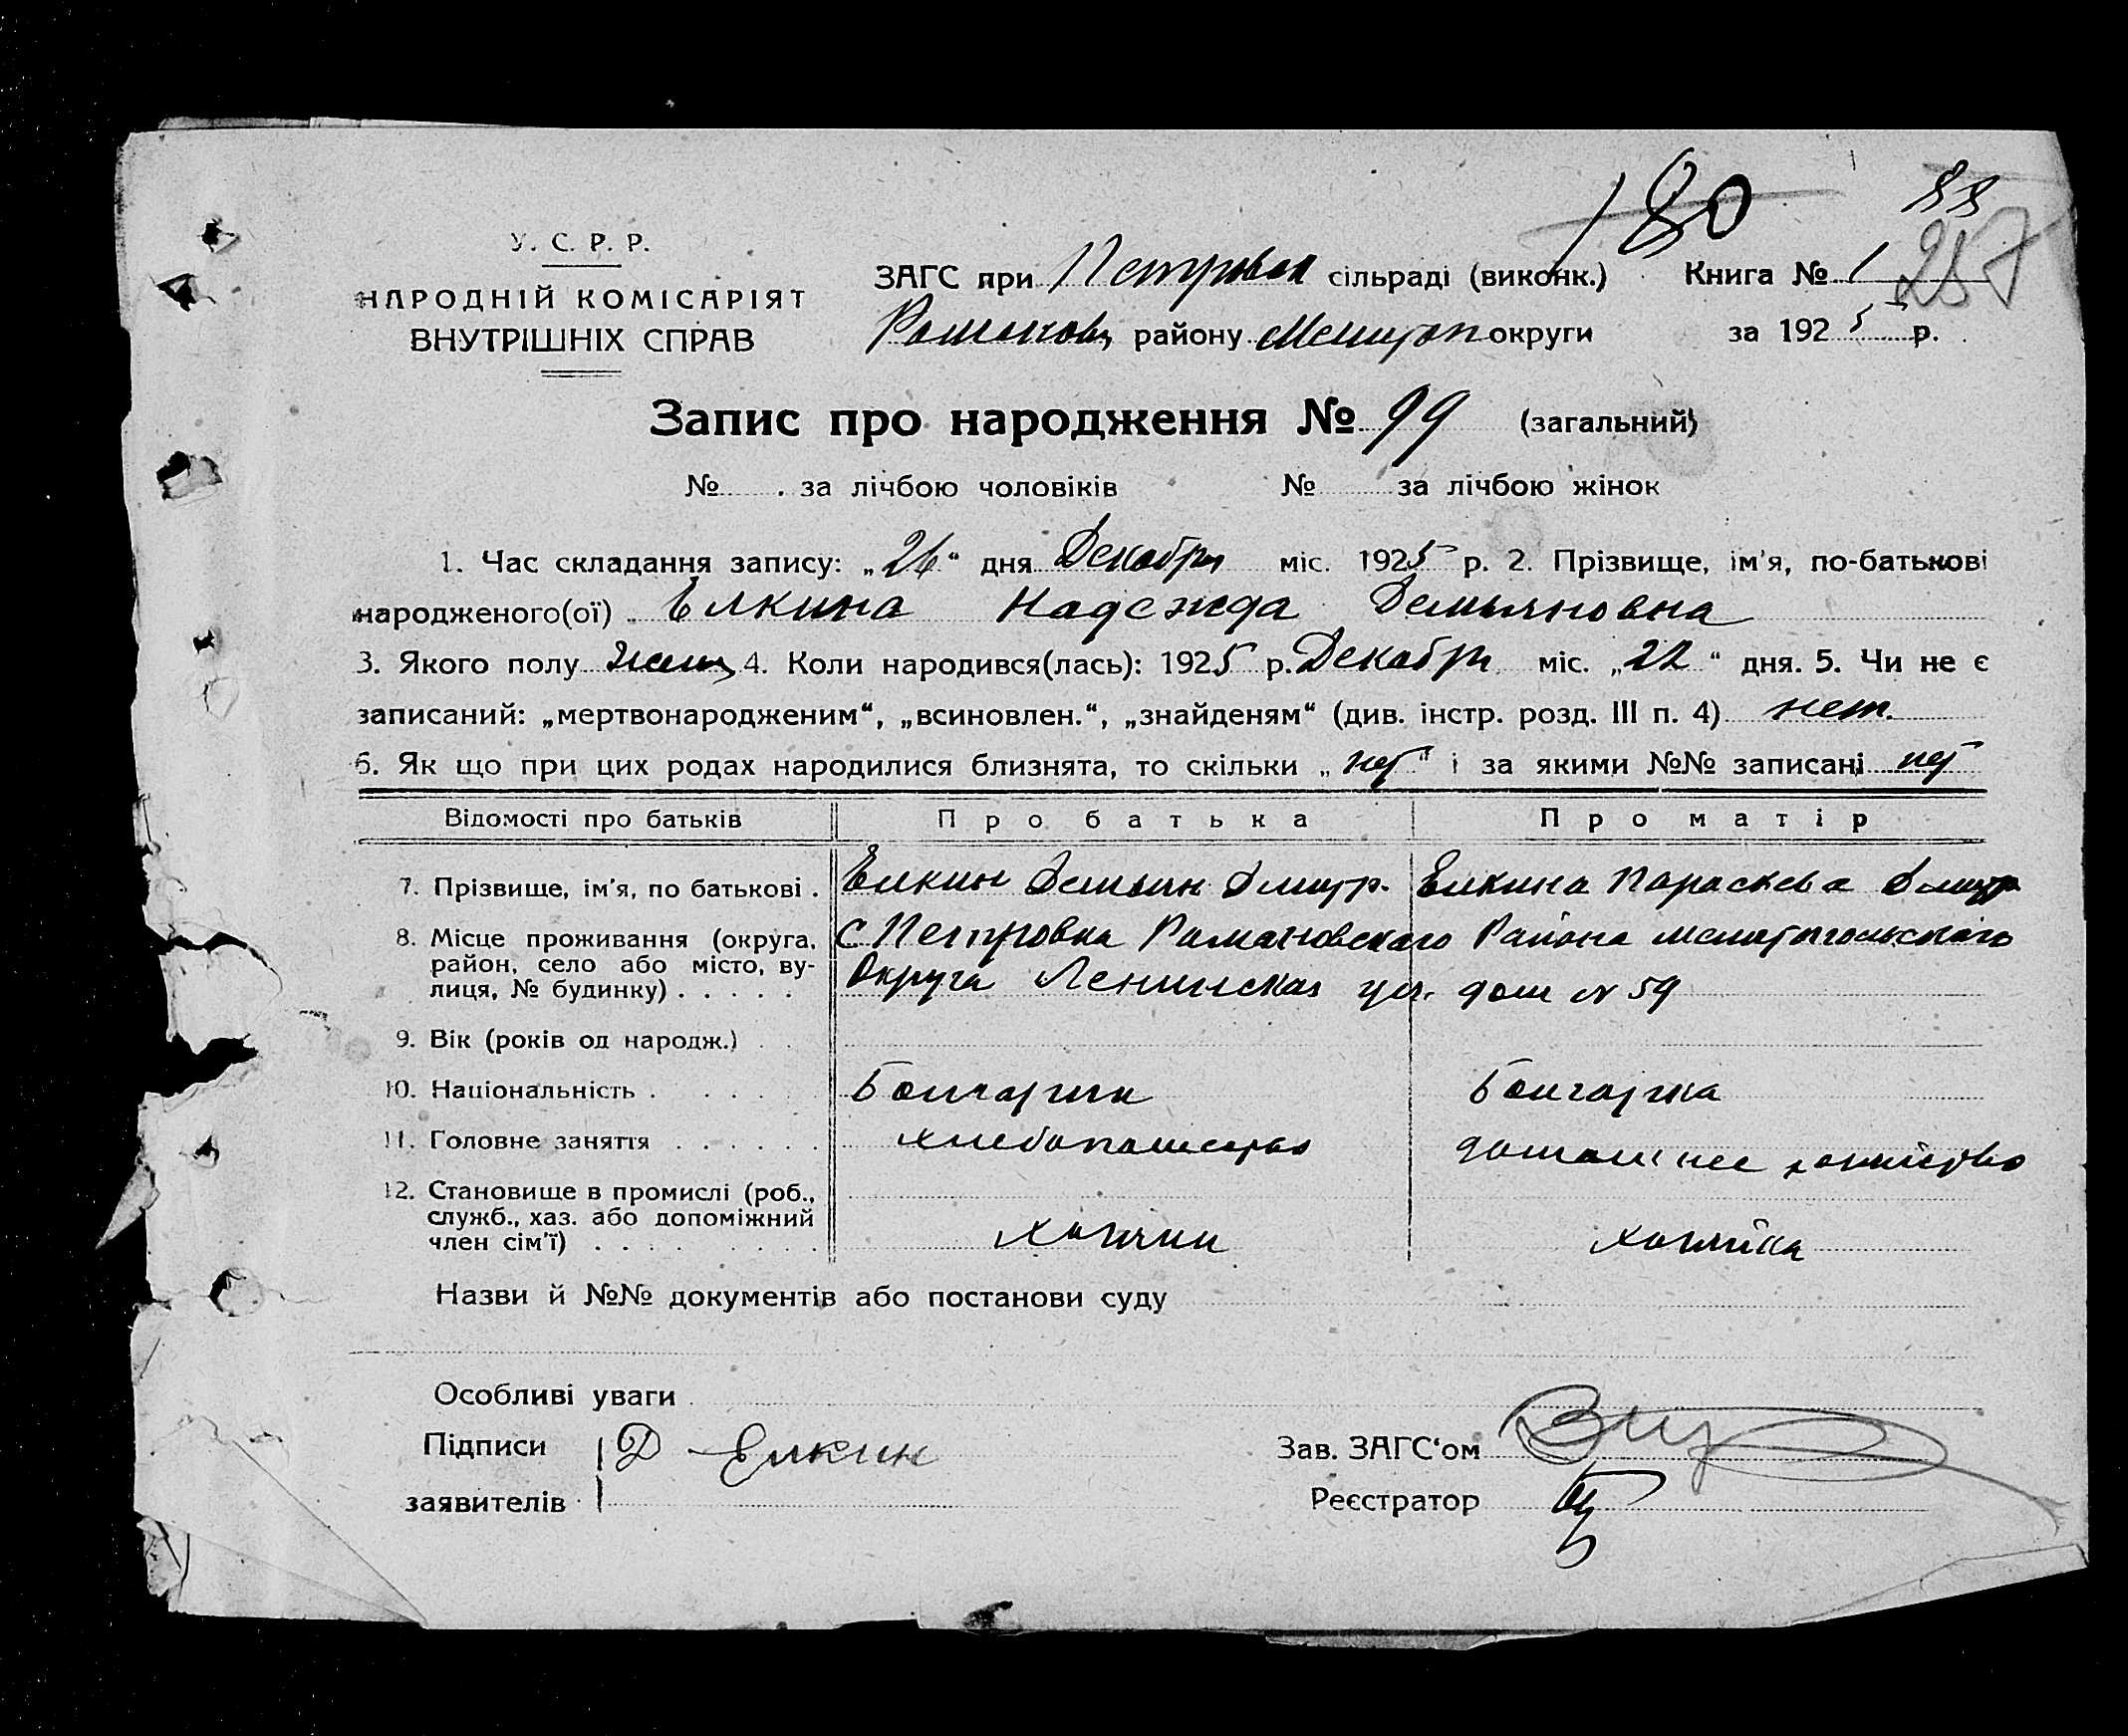 180
88
257
У. С. Р. Р.
НАРОДНІЙ КОМІСАРІЯТ
ВНУТРІШНІХ СПРАВ
ЗАГС при Петровск сільраді (виконк.) Книга № 1
Романов району Мелитоп округи за 1925 р.
Запис про народження № 99 (загальний)
№ за лічбою чоловіків № за лічбою жінок
1. Час складання запису: „26“ дня Декабря міс. 1925 р. 2. Прізвище, ім'я, по-батькові
народженого(ої) Елкина Надежда Демьяновна
3. Якого полу женщ 4. Коли народився(лась): 1925 р. Декабря міс. „22“ дня. 5. Чи не є
записаний: „мертвонародженим“, „всиновлен.“, „знайденям“ (див. інстр. розд. III п. 4) нет.
6. Як що при цих родах народилися близнята, то скільки „нет“ і за якими №№ записані нет
Відомості про батьків Про батька Про матір
7. Прізвище, ім'я, по батькові . Елкин Демьян Дмитр. Елкина Параскева Дмитр
8. Місце проживання (округа, С Петровка Романовского Района мелитопольского
район, село або місто, ву- Округа Ленинская ул. дом N 59
лиця, № будинку) . . . . .
9. Вік (років од народж.) . .
10. Національність . . . . . Болгарин Болгарка
11. Головне заняття . . . . . . хлебопашество домашнее хозяйство
12. Становище в промислі (роб.,
служб., хаз. або допоміжний
член сім'ї) . . . . . . . . хозяин хозяйка
Назви й №№ документів або постанови суду
Особливі уваги
Підписи Д Елкин Зав. ЗАГС'ом
заявителів Реєстратор